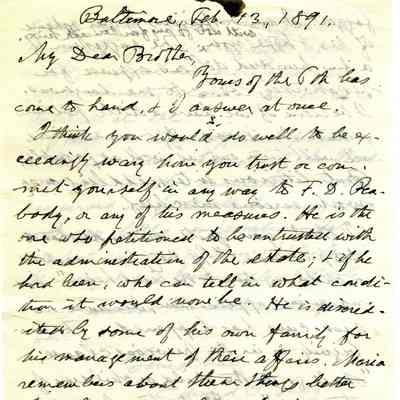 Baltimore, Feb. 13, 1891.
My Dear Brother,
Yours of the 6th has
come to hand, & I answer at once.
I think you would do well to be ex-
ceedingly wary how you trust or com-
mit yourself in any way to F. D. Pea-
body, or any of his measures. He is the
one who petitioned to be entrusted with
the administration of the estate; & if he
had been, who can tell in what condi-
tion it would now be. He is discred-
ited by some of his own family for
his management of their affairs. Maria
remembers about these things better